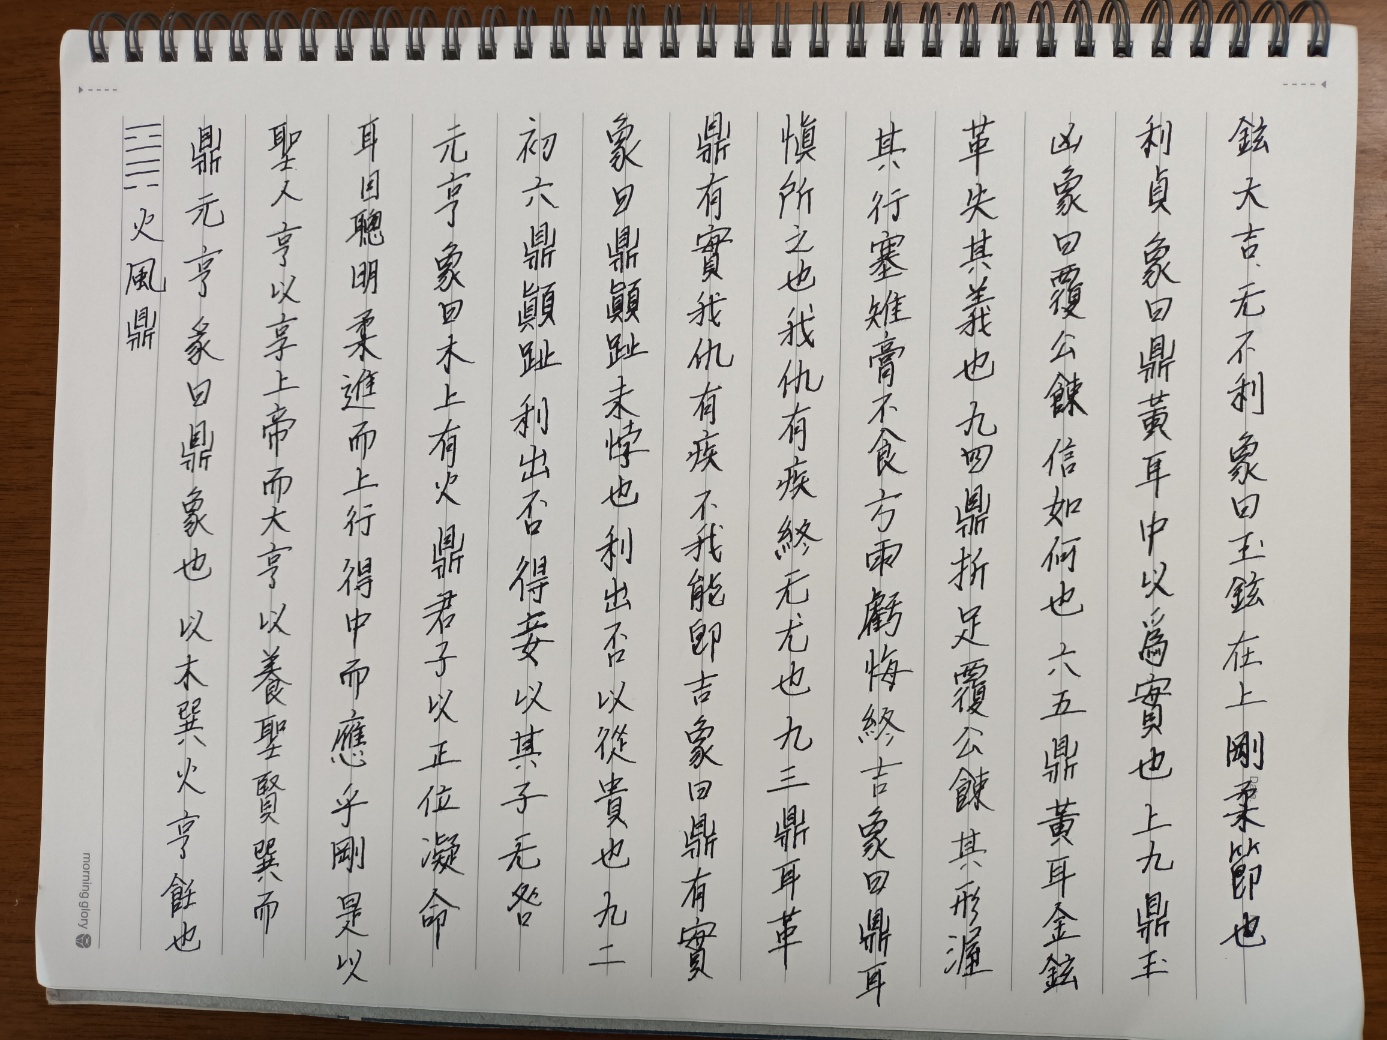 ䷱ 火風鼎
鼎元亨彖曰鼎象也以木巽火亨飪也
聖人亨以享上帝而大亨以養聖賢巽而
耳目聰明柔進而上行得中而應乎剛是以
元亨象曰木上有火鼎君子以正位凝命
初六鼎顚趾利出否得妾以其子无咎
象曰鼎顚趾未悖也利出否以從貴也九二
鼎有實我仇有疾不我能卽吉象曰鼎有實
愼所之也我仇有疾終无尤也九三鼎耳革
其行塞雉膏不食方雨虧悔終吉象曰鼎耳
革失其義也九四鼎折足覆公餗其形渥
凶象曰覆公餗信如何也六五鼎黃耳金鉉
利貞象曰鼎黃耳中以爲實也上九鼎玉
鉉大吉无不利象曰玉鉉在上剛柔節也
morning glory